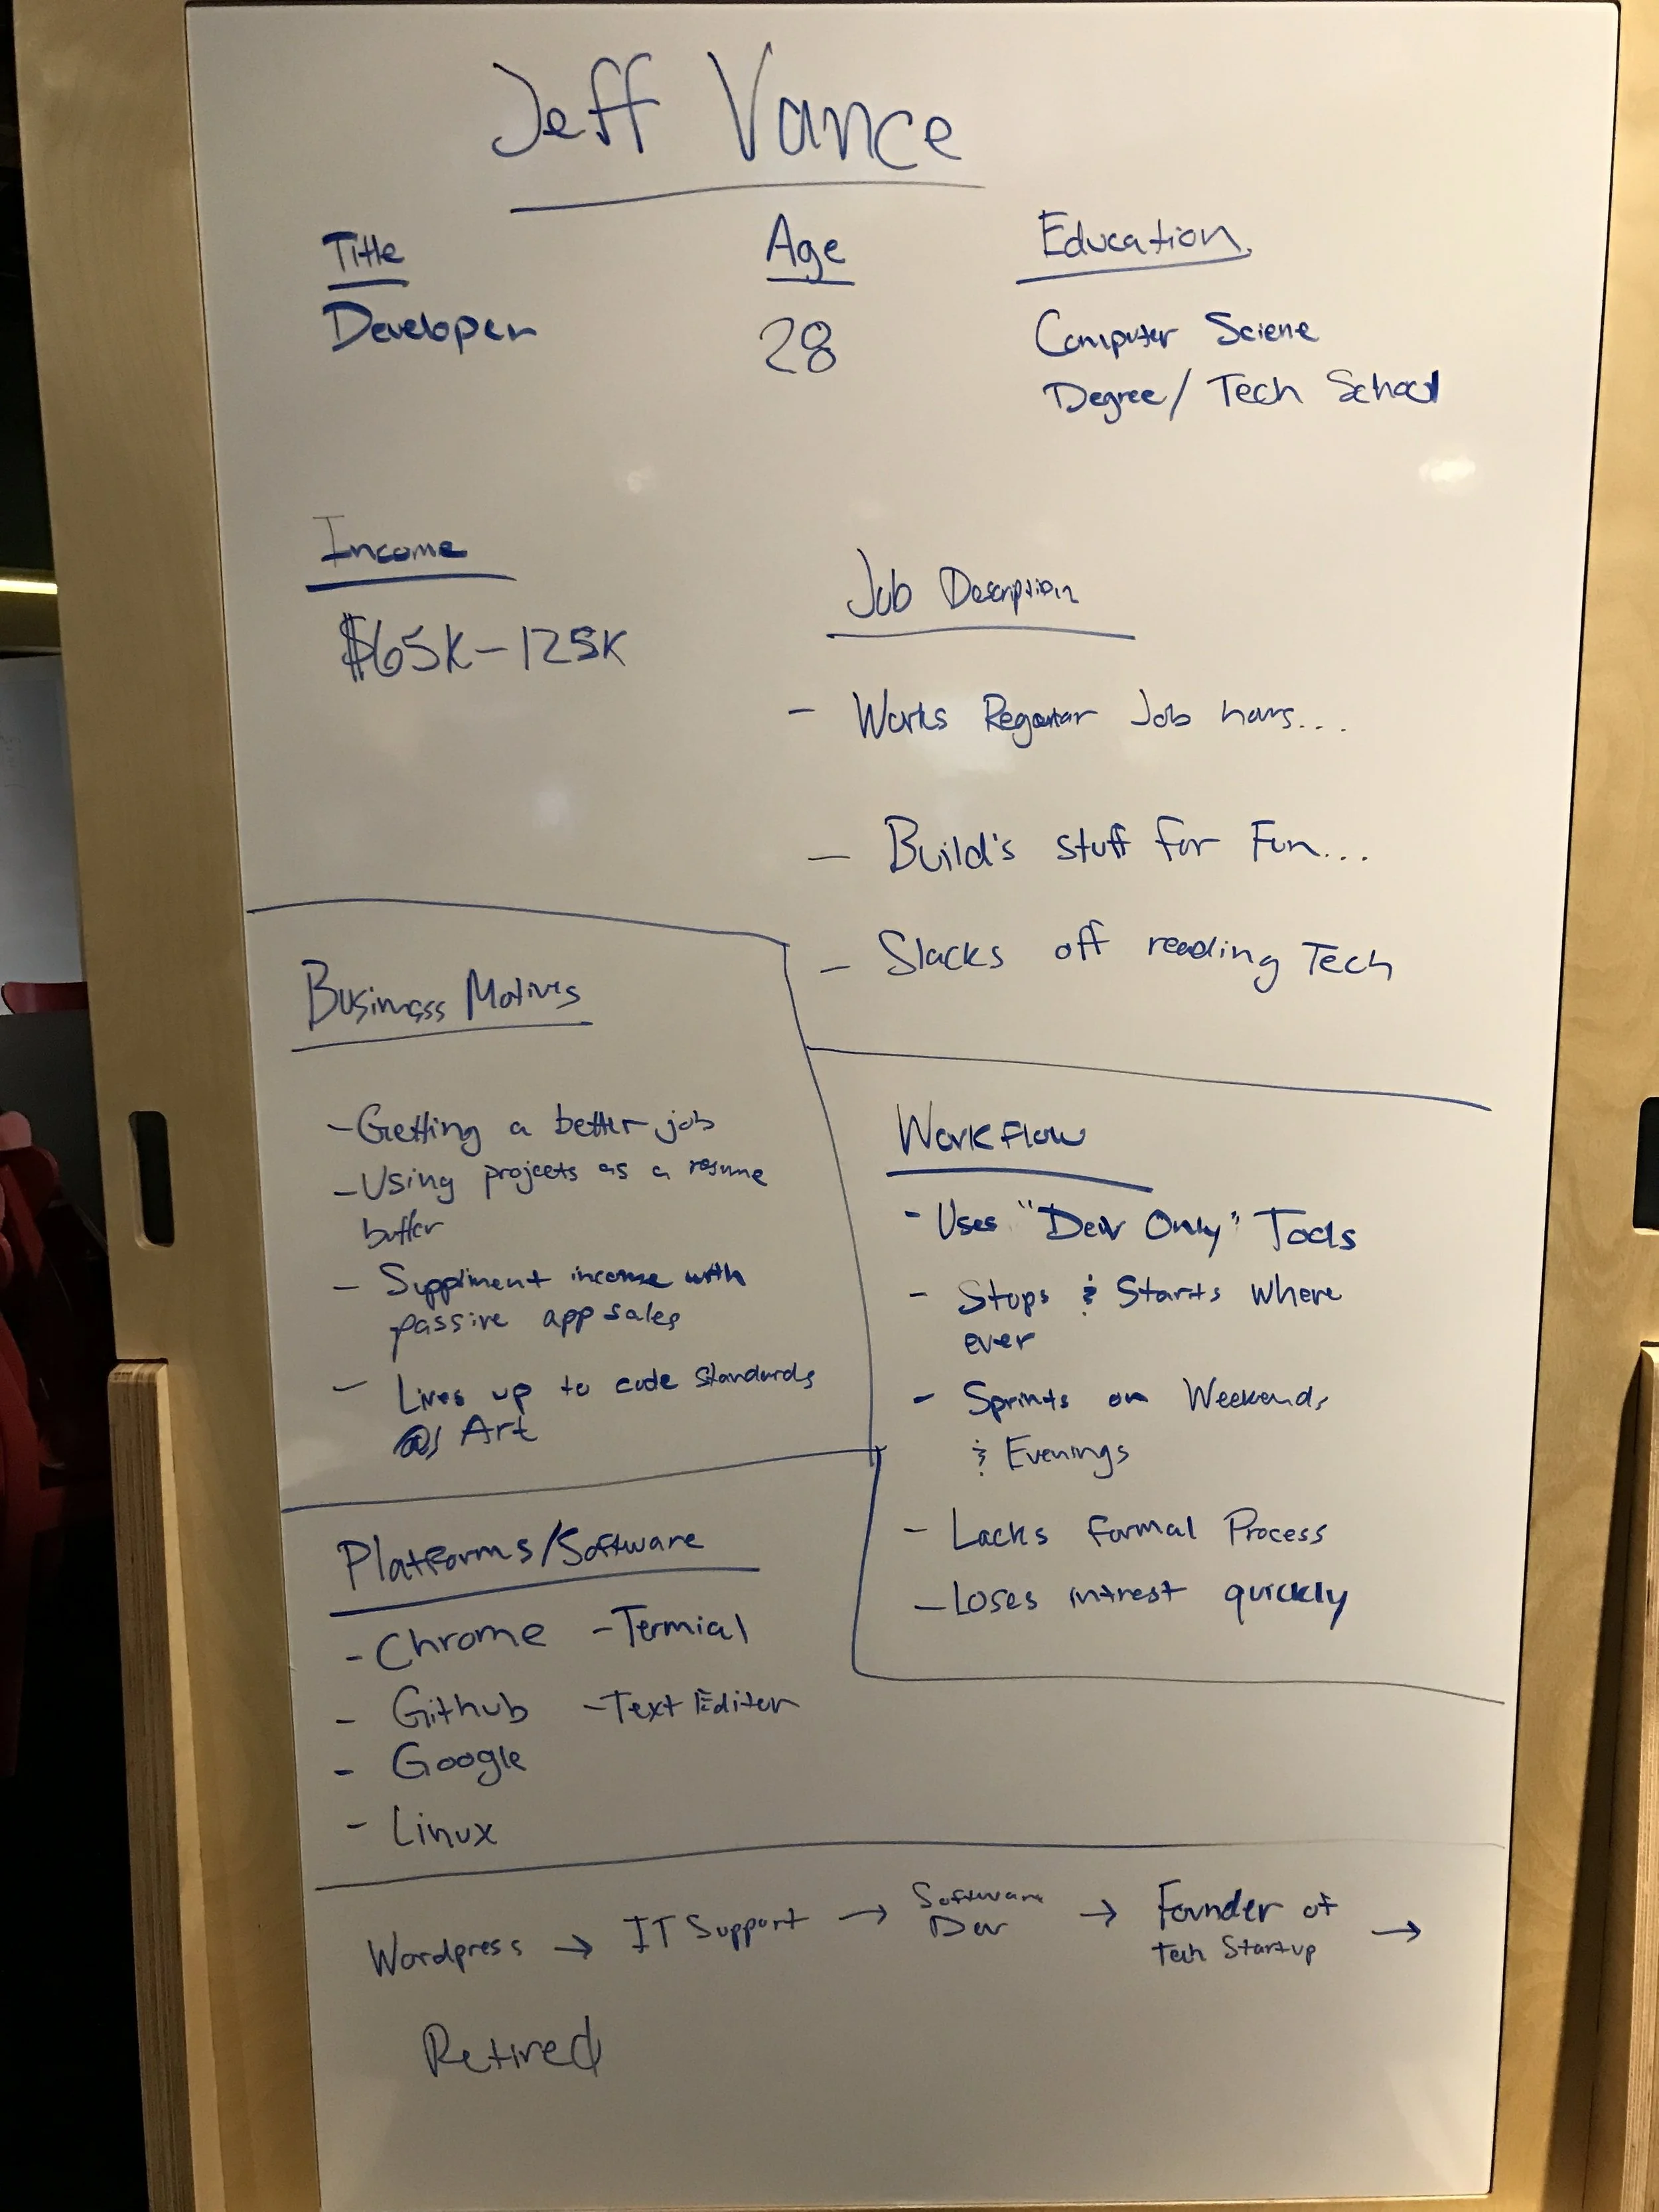 Jeff Vance
Title
Developer
Age
28
Education
Computer Sciene
Degree/ Tech School
Income
$65K-125K
Job Description
- Works Regular Job hours...
- Build's stuff for Fun...
- Slacks off reading Tech
Business Motives
- Getting a better job
- Using projects as a resume
buffer
- Suppliment income with
passive app sales
- Lives up to code standards
as Art
Workflow
- Uses "Dev Only" Tools
- Stops & Starts where
ever
- Sprints on Weekends
& Evenings
- Lacks formal Process
- Loses intrest quickly
Platforms/Software
- Chrome - Termial
- Github - Text Editer
- Google
- Linux
Wordpress → IT Support → Software
Dev → Founder of
Tech Startup →
Retired